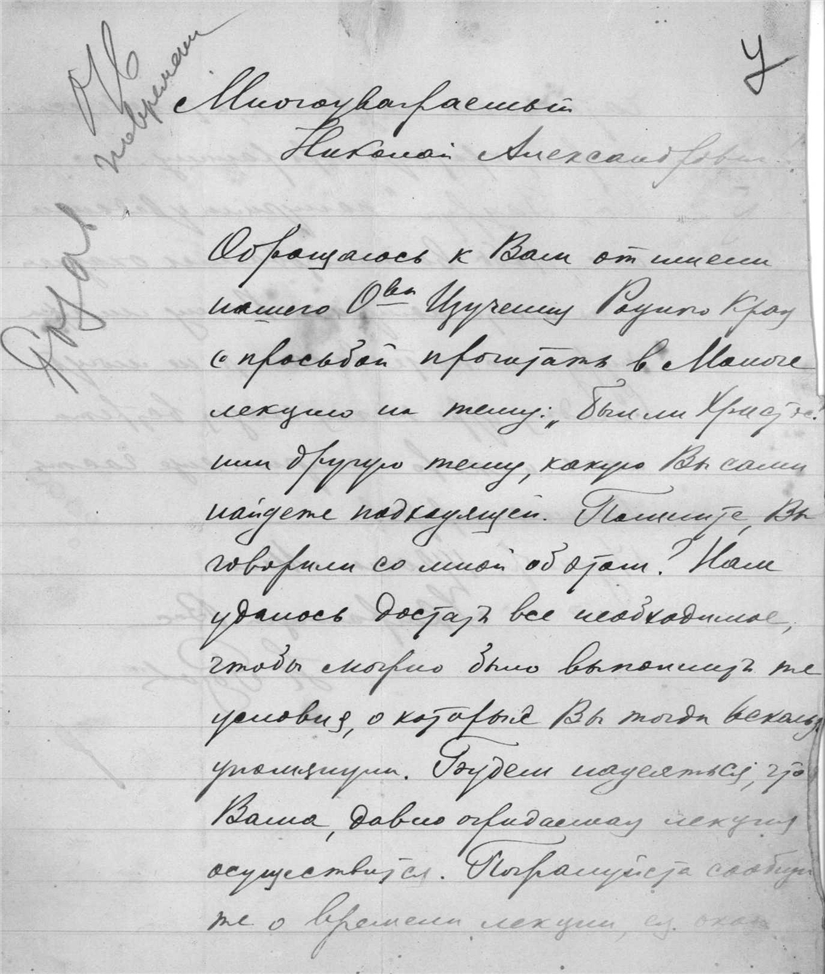 Многоуважаемый
Николай Александрович!
Обращаюсь к Вам от имени
нашего О-ва Изучения Родного Края
с просьбой прочитать в Мологе
лекцию на тему: „Был ли Христос"
или другую тему, какую Вы сами
найдете подходящей. Помните, Вы
говорили со мной об этом? Нам
удалось достать все необходимое,
чтобы можно было выполнить те
условия, о которых Вы тогда вскользь
упомянули. Будем надеяться, что
Ваша, давно ожидаемая лекция
осуществится. Пожалуйста сообщи
те о времени лекции,